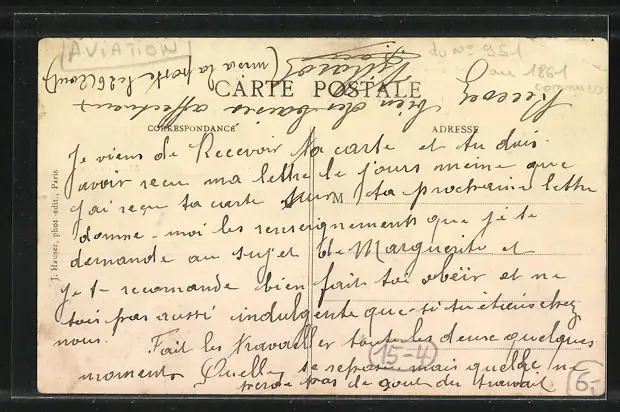 AVIATION
du N° 951
au 1861
connues
(mise la poste le 26 (2 août)
CARTE POSTALE
Recois bien des baisers affectueux
CORRESPONDANCE
ADRESSE
M
J. Hauser, phot.-édit., Paris
Je viens de Recevoir ta carte et tu dois
avoir recu ma lettre le jours meme que
j'ai reçu ta carte sur ta prochaine lettre
donne-moi les renseignements que je te
demande au sujet de Marguerite et
je te recomande bien fait toi obéïr et ne
sois pas aussi indulgente que si tu étais chez
nous. Fait les travailler toute les deux quelques
moments Quelle se repose mais quelle ne
perde pas le gout du travail
15-4
6.-